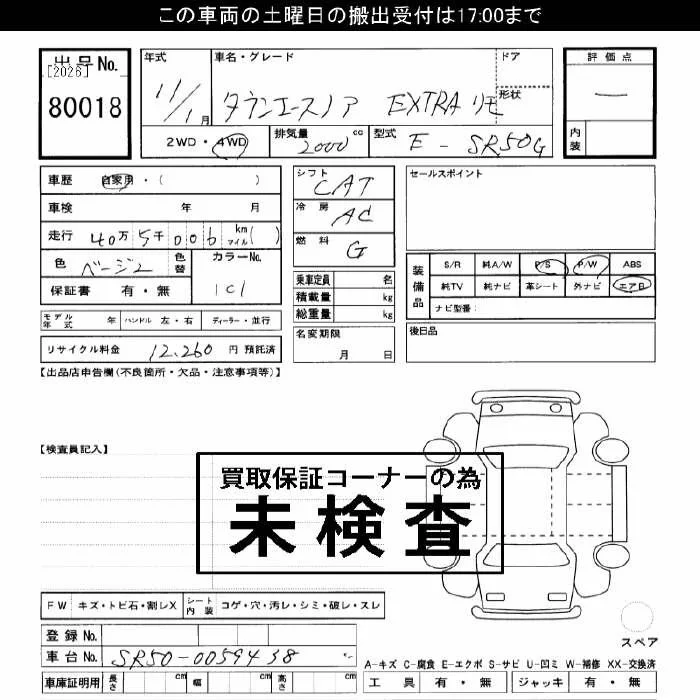 この車両の土曜日の搬出受付は17:00まで
出品No.
[2026]
80018
年式 11/1月
車名・グレード タウンエースノア EXTRAリモ
ドア
形状
2WD・4WD
排気量 2000cc
型式 E-SR50G
評価点
一
内装
車歴 自家用・( )
車検 年 月
走行 40万5千006 km マイル( )
色 ベージュ 色替 カラーNo. 1C1
保証書 有・無
モデル年式 年 ハンドル 左・右 ディーラー・並行
リサイクル料金 12,260円 預託済
シフト CAT
冷房 AC
燃料 G
乗車定員 名
積載量 kg
総重量 kg
名変期限 月 日
セールスポイント
装備品
S/R 純A/W P/S P/W ABS
純TV 純ナビ 革シート 外ナビ エアB
ナビ型番:
後日品
【出品店申告欄(不良箇所・欠品・注意事項等)】
【検査員記入】
買取保証コーナーの為
未検査
FW キズ・トビ石・割レX シート内装 コゲ・穴・汚レ・シミ・破レ・スレ
登録No.
車台No. SR50-0059438
車庫証明用 長さ cm 幅 cm 高さ cm
スペア
A-キズ C-腐食 E-エクボ S-サビ U-凹ミ W-補修 XX-交換済
工具 有・無 ジャッキ 有・無